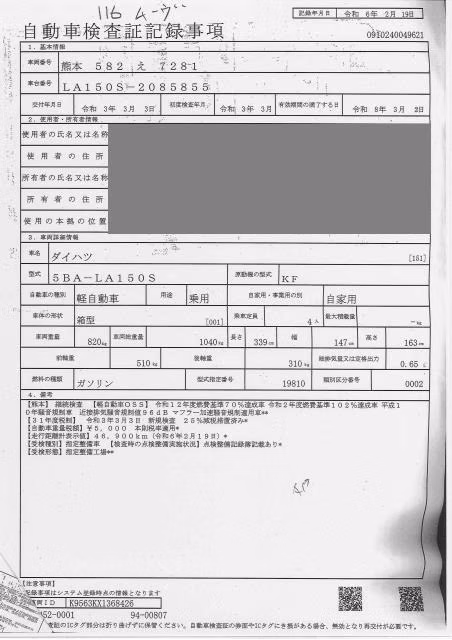 116 ムーヴ
記録年月日 令和 6年 2月 19日
自動車検査証記録事項
0910240049621
1. 基本情報
車両番号 熊本 582 え 728-1
車台番号 LA150S-2085855
交付年月日 令和 3年 3月 3日 初度検査年月 令和 3年 3月 有効期間の満了する日 令和 8年 3月 2日
2. 使用者・所有者情報
使用者の氏名又は名称
使用者の住所
所有者の氏名又は名称
所有者の住所
使用の本拠の位置
3. 車両詳細情報
車名 ダイハツ [151]
型式 5BA-LA150S 原動機の型式 KF
自動車の種別 軽自動車 用途 乗用 自家用・事業用の別 自家用
車体の形状 箱型 [001] 乗車定員 4人 最大積載量 -kg
車両重量 820kg 車両総重量 1040kg 長さ 339cm 幅 147cm 高さ 163cm
前軸重 510kg 後軸重 310kg 総排気量又は定格出力 0.65 L
燃料の種類 ガソリン 型式指定番号 19810 類別区分番号 0002
4. 備考
【熊本】 継続検査 【軽自動車OSS】 令和12年度燃費基準70%達成車 令和2年度燃費基準102%達成車 平成1
0年騒音規制車 近接排気騒音規制値96dB マフラー加速騒音規制適用車**
【31年度税制】 令和3年3月3日 新規検査 25%減税措置済み*
【自動車重量税額】¥5,000 本則税率適用*
【走行距離計表示値】46,900km(令和6年2月19日)*
【受検種別】指定整備車 【検査時の点検整備実施状況】点検整備記録簿記載あり*
【受検形態】指定整備工場**
【注意事項】
記録事項はシステム登録時点の情報となります
車両ID K9563KX1368426
52-0001 94-00807
査証のICタグ部分は折り曲げずに保管ください。自動車検査証の券面やICタグにき損がある場合、無効となり再交付が必要です。